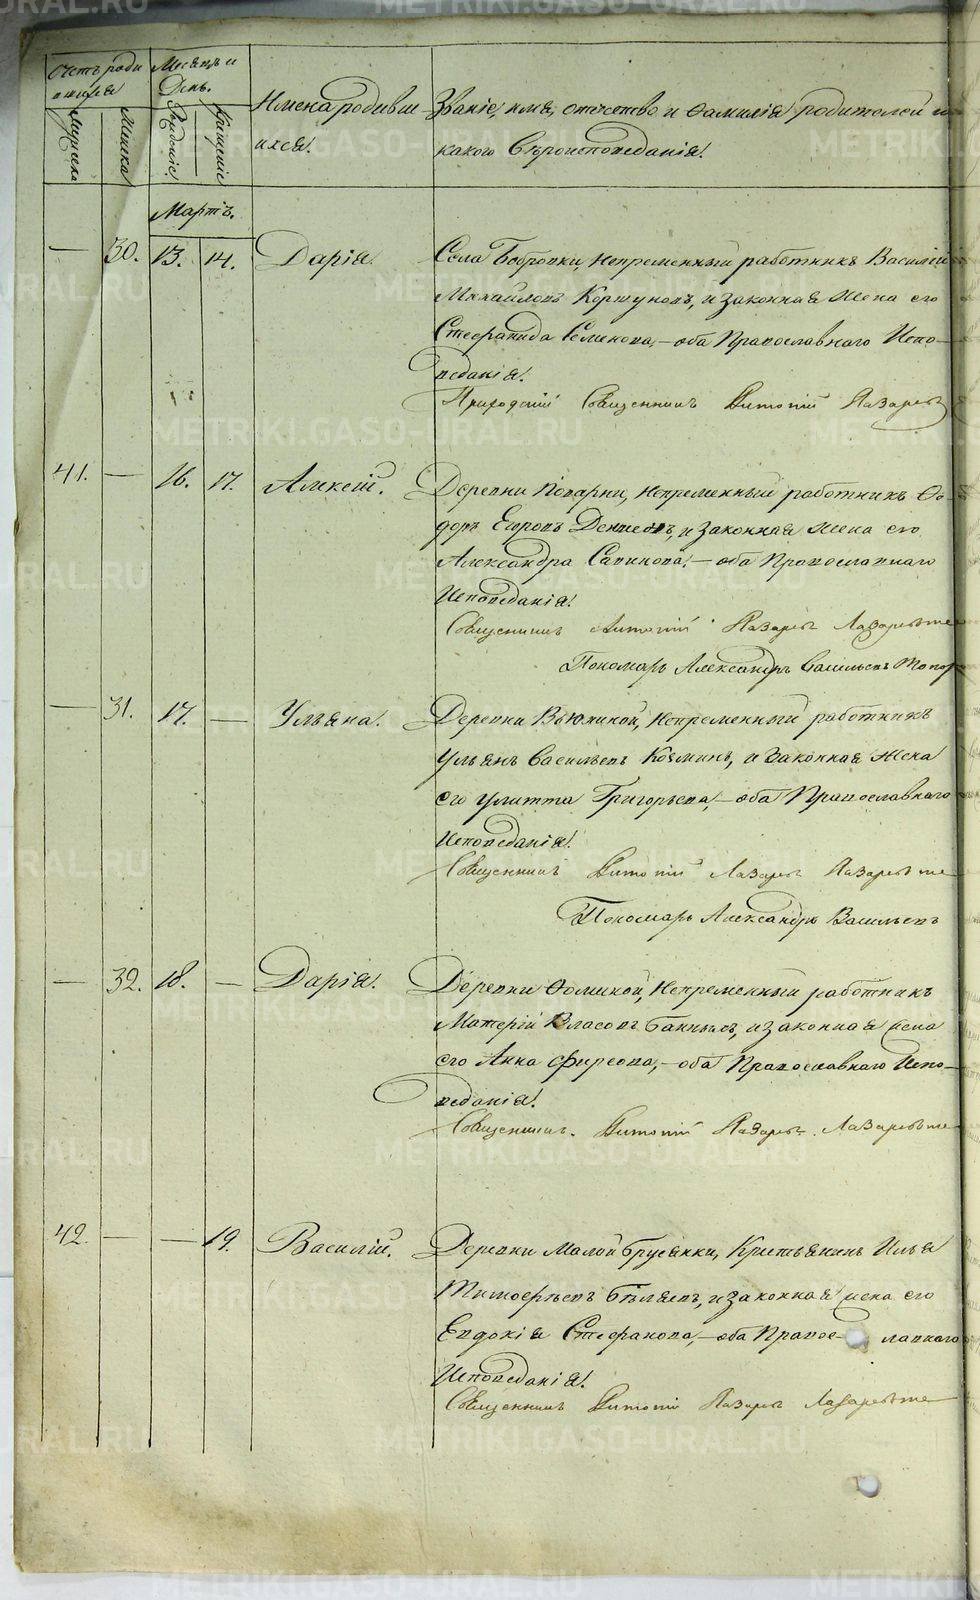 Счетъ роди
вшихся
Мѣсяцъ и
День.
Мужеска
Женска
Рожденіе.
Крещеніе
Имена родивши
ихся.
Званіе, имя, отчество и фамилія родителей и
какого Вѣроисповеданія.
Мартъ.
— 30. 13. 14. Дарія
Села Бобровки, Непременный работникъ Василій
Михайловъ Коршуновъ, и законная жена его
Стефанида Семенова, — оба Православнаго Испо-
веданія.
Приходскій Священникъ Антоній Лазаревъ
41. — 16. 17. Алексій.
Деревни Поварни, Непременный работникъ Фе-
доръ Егоровъ, и законная жена его
Александра Савинова, — оба Православнаго
Исповеданія.
Священникъ Антоній Лазаревъ Лазаревъ
Пономарь Александръ Васильевъ Топор
— 31. 17. — Ульяна.
Деревни Вьюхиной, Непременный работникъ
Ульянъ Васильевъ Козминъ, и законная жена
его Улитта Григорьева, — оба Православнаго
Исповеданія.
Священникъ Антоній Лазаревъ Лазаревъ
Пономарь Александръ Васильевъ
— 32. 18. — Дарія.
Деревни Фоминой, Непременный работникъ
Власовъ Банныхъ, и законная жена
его Анна Фирсова, — оба Православнаго Испо-
веданія.
Священникъ Антоній Лазаревъ Лазаревъ
42. — — 19. Василій.
Деревни Малой Брусянки, Крестьянинъ Илья
Тимофеевъ Бѣляевъ, и законная жена его
Евдокія Стефанова, — оба Православнаго
Исповеданія.
Священникъ Антоній Лазаревъ Лазаревъ
METRIKI.GASO-URAL.RU